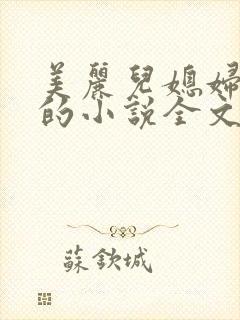 美麗兒媳婦
的小說全文
蘇欽城